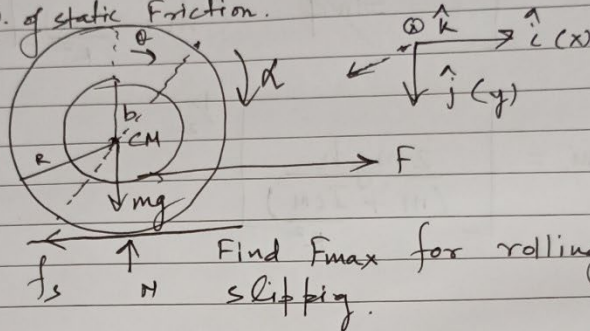 . of static Friction.
θ
⊗ k̂ î (x)
α
ĵ (y)
b
CM
R
F
mg
Find Fmax for rolling
fs N slipping.